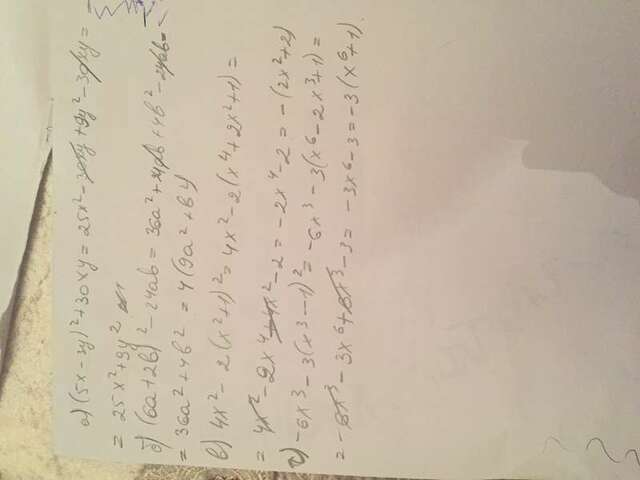 а) (5x-3y)²+30xy = 25x²-30xy+9y²-30xy=
= 25x²+9y²
б) (6a+2b)²-24ab = 36a²+24ab+4b²-24ab=
= 36a²+4b² = 4(9a²+b²)
в) 4x²-2(x²+1)² = 4x²-2(x⁴+2x²+1)=
= 4x²-2x⁴+4x²-2 = -2x⁴-2 = -(2x²+2)
г) -6x³-3(x³-1)² = -6x³-3(x⁶-2x³+1)=
= -6x³-3x⁶+6x³-3 = -3x⁶-3 = -3(x⁶+1)